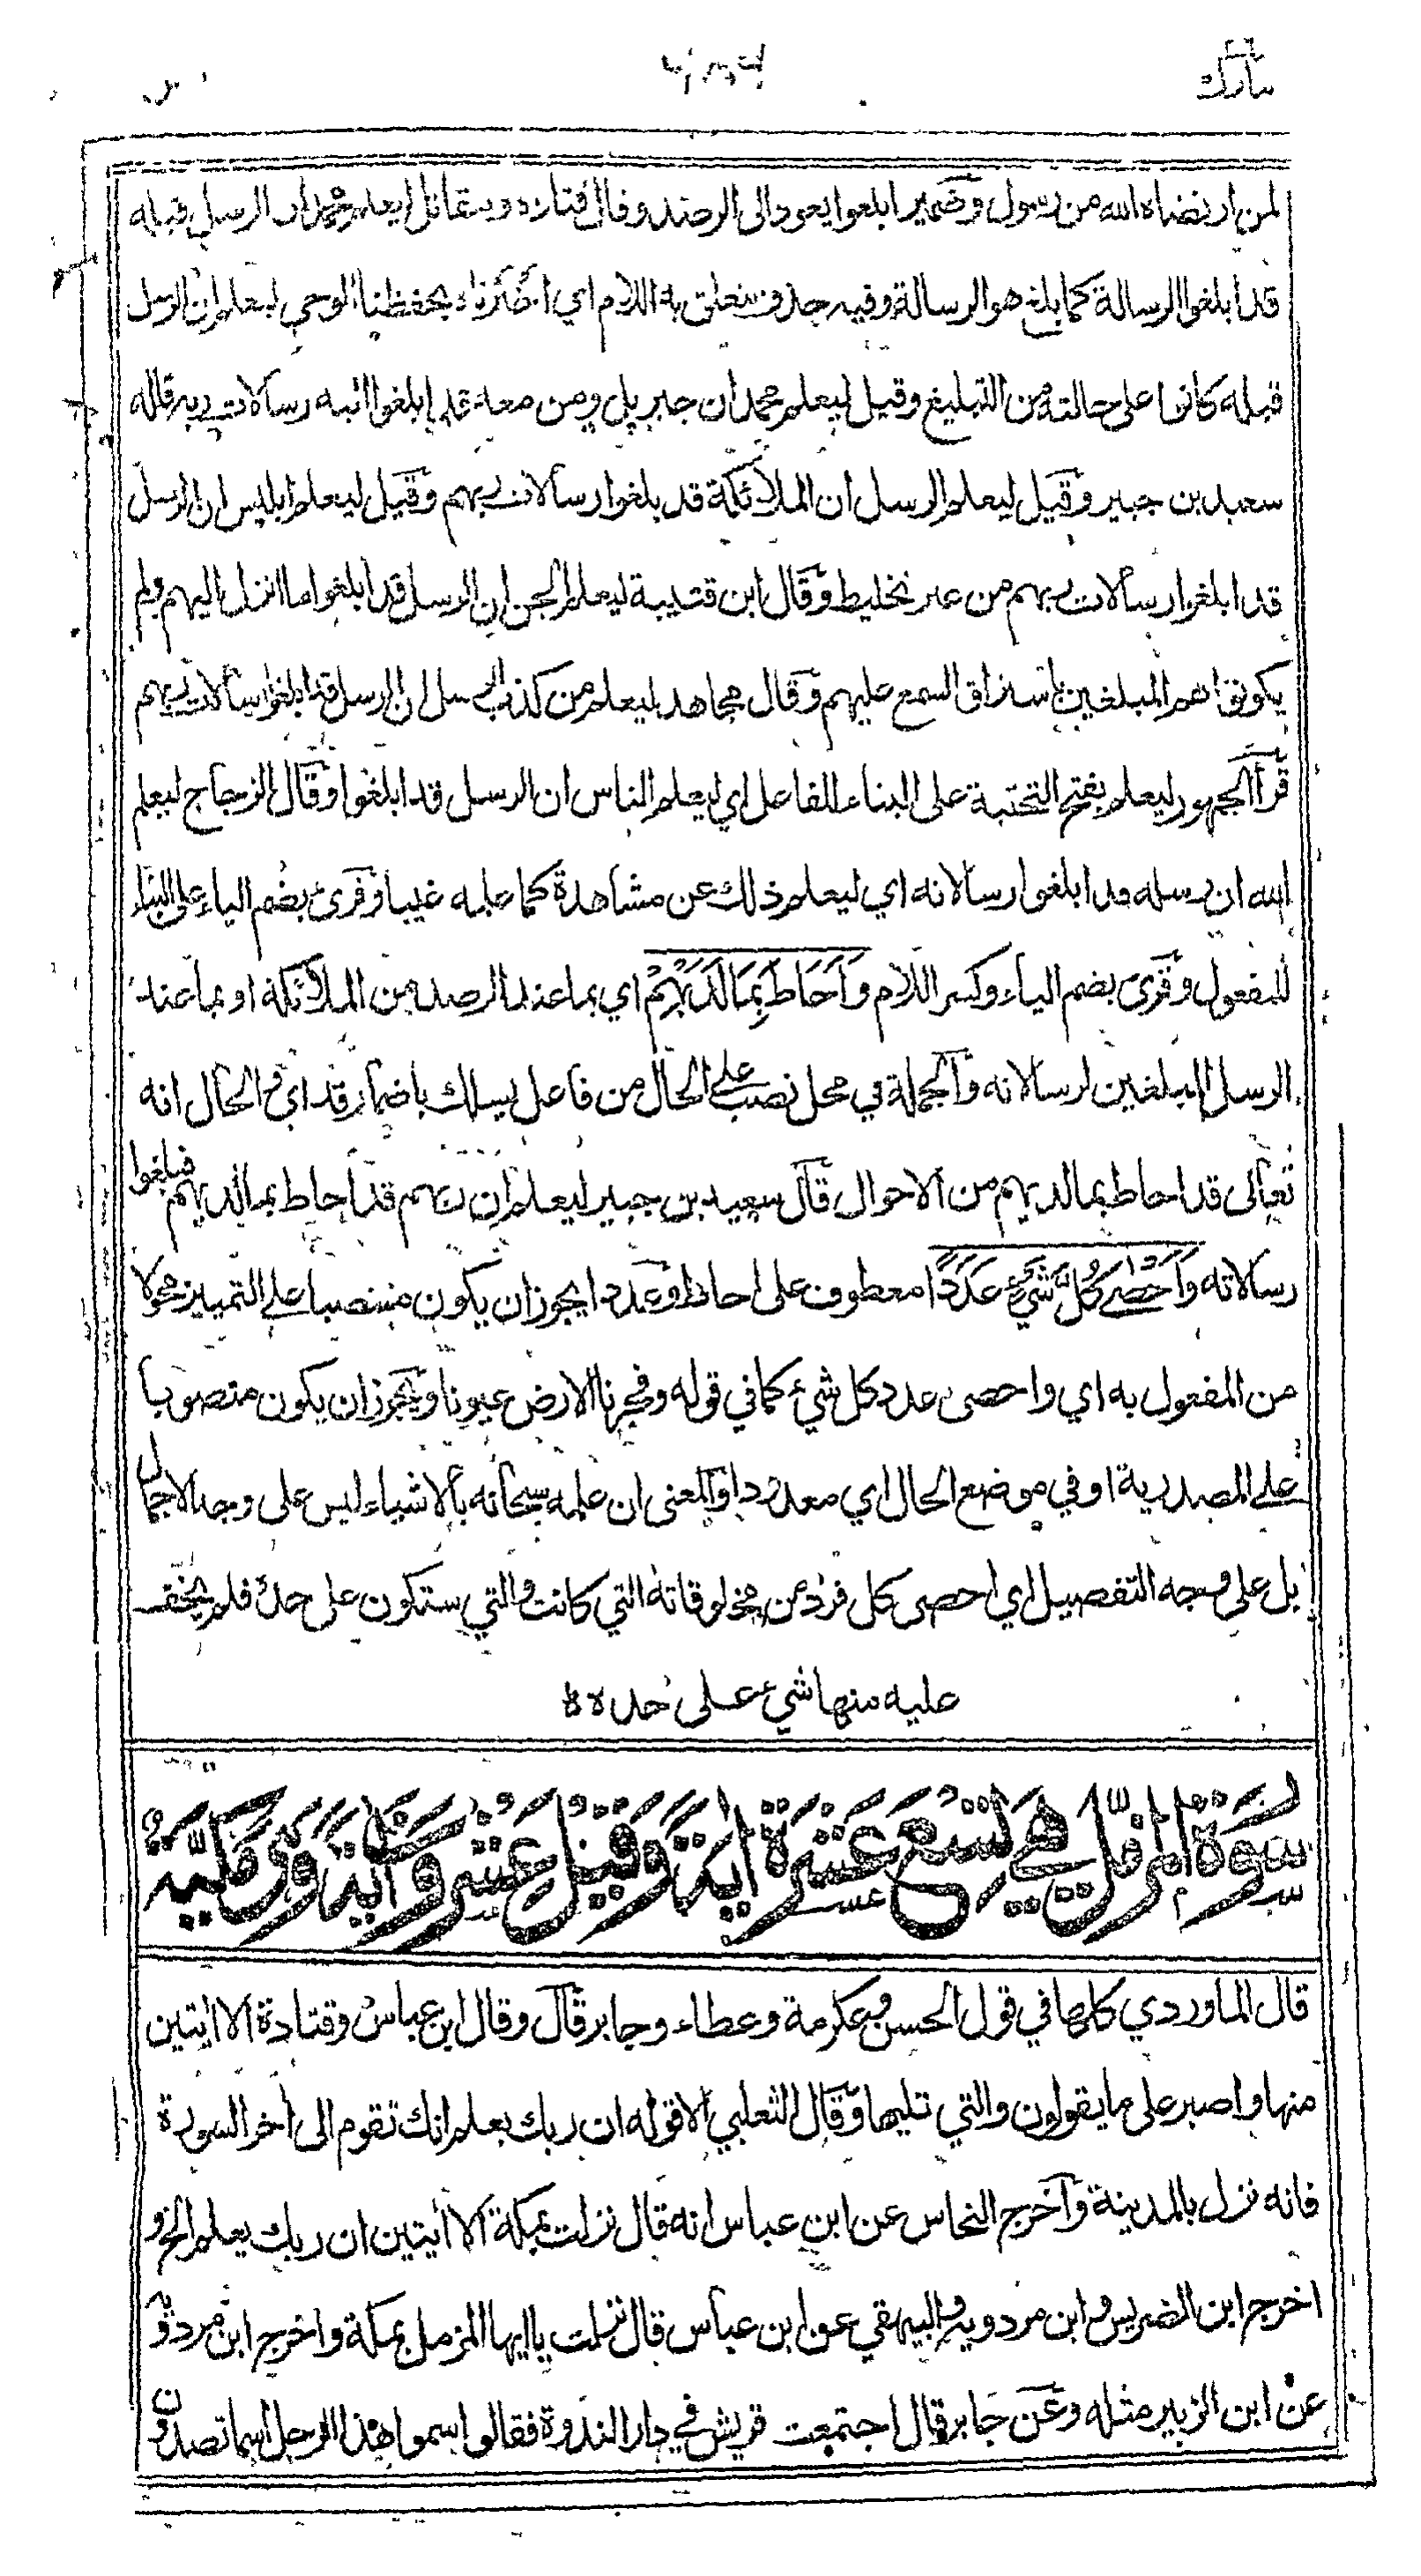 تبارك
لمن ارتضاه الله من رسول وضمير ابلغوا يعود الى الرصد وقال قتادة ومقاتل ليعلم محمد ان الرسل قبله
قد ابلغوا الرسالة كما بلغ هو الرسالة وفيه حذف يتعلق به اللام اي اخبرناه بحفظنا الوحي ليعلم ان الرسل
قبله كانوا على حالته من التبليغ وقيل ليعلم محمد ان جبريل ومن معه قد ابلغوا اليه رسالات ربه قاله
سعيد بن جبير وقيل ليعلم الرسل ان الملائكة قد بلغوا رسالات ربهم وقيل ليعلم ابليس ان الرسل
قد ابلغوا رسالات ربهم من غير تخليط وقال ابن قتيبة ليعلم الجن ان الرسل قد ابلغوا ما انزل اليهم ولم
يكونوا هم المبلغين باستراق السمع عليهم وقال مجاهد ليعلم من كذب الرسل ان الرسل قد ابلغوا رسالات ربهم
قرأ الجمهور ليعلم بفتح التحتية على البناء للفاعل اي ليعلم الناس ان الرسل قد ابلغوا وقال الزجاج ليعلم
الله ان رسله قد ابلغوا رسالاته اي ليعلم ذلك عن مشاهدة كما علمه غيبا وقرئ بضم الياء على البناء
للمفعول وقرئ بضم الياء وكسر اللام وَاَحَاطَ بِمَا لَدَيْهِمْ اي بما عند الرصد من الملائكة او بما عند
الرسل المبلغين لرسالاته والجملة في محل نصب على الحال من فاعل يسلك باضمار قد اي والحال انه
تعالى قد احاط بما لديهم من الاحوال قال سعيد بن جبير ليعلم ان ربهم قد احاط بما لديهم فبلغوا
رسالاته وَاَحْصٰى كُلَّ شَيْءٍ عَدَدًا معطوف على احاط وعددا يجوز ان يكون منتصبا على التمييز محولا
من المفعول به اي واحصى عدد كل شيء كما في قوله وفجرنا الارض عيونا ويجوز ان يكون منصوبا
على المصدرية او في موضع الحال اي معدودا والمعنى ان علمه سبحانه بالاشياء ليس على وجه الاجمال
بل على وجه التفصيل اي احصى كل فرد من مخلوقاته التي كانت والتي ستكون على حدة فلم يخف
عليه منها شيء على حدة ط
سورة المزمل هي تسع عشرة اية وقيل عشرون اية وهي مكية
قال الماوردي كلها في قول الحسن وعكرمة وعطاء وجابر قال وقال ابن عباس وقتادة الا ايتين
منها واصبر على ما يقولون والتي تليها وقال الثعلبي الا قوله ان ربك يعلم انك تقوم الى اخر السورة
فانه نزل بالمدينة واخرج النحاس عن ابن عباس انه قال نزلت بمكة الا ايتين ان ربك يعلم الخ و
اخرج ابن الضريس وابن مردويه والبيهقي عن ابن عباس قال نزلت يا ايها المزمل بمكة واخرج ابن مردويه
عن ابن الزبير مثله وعن جابر قال اجتمعت قريش في دار الندوة فقالوا اسموا هذا الرجل اسما تصدون